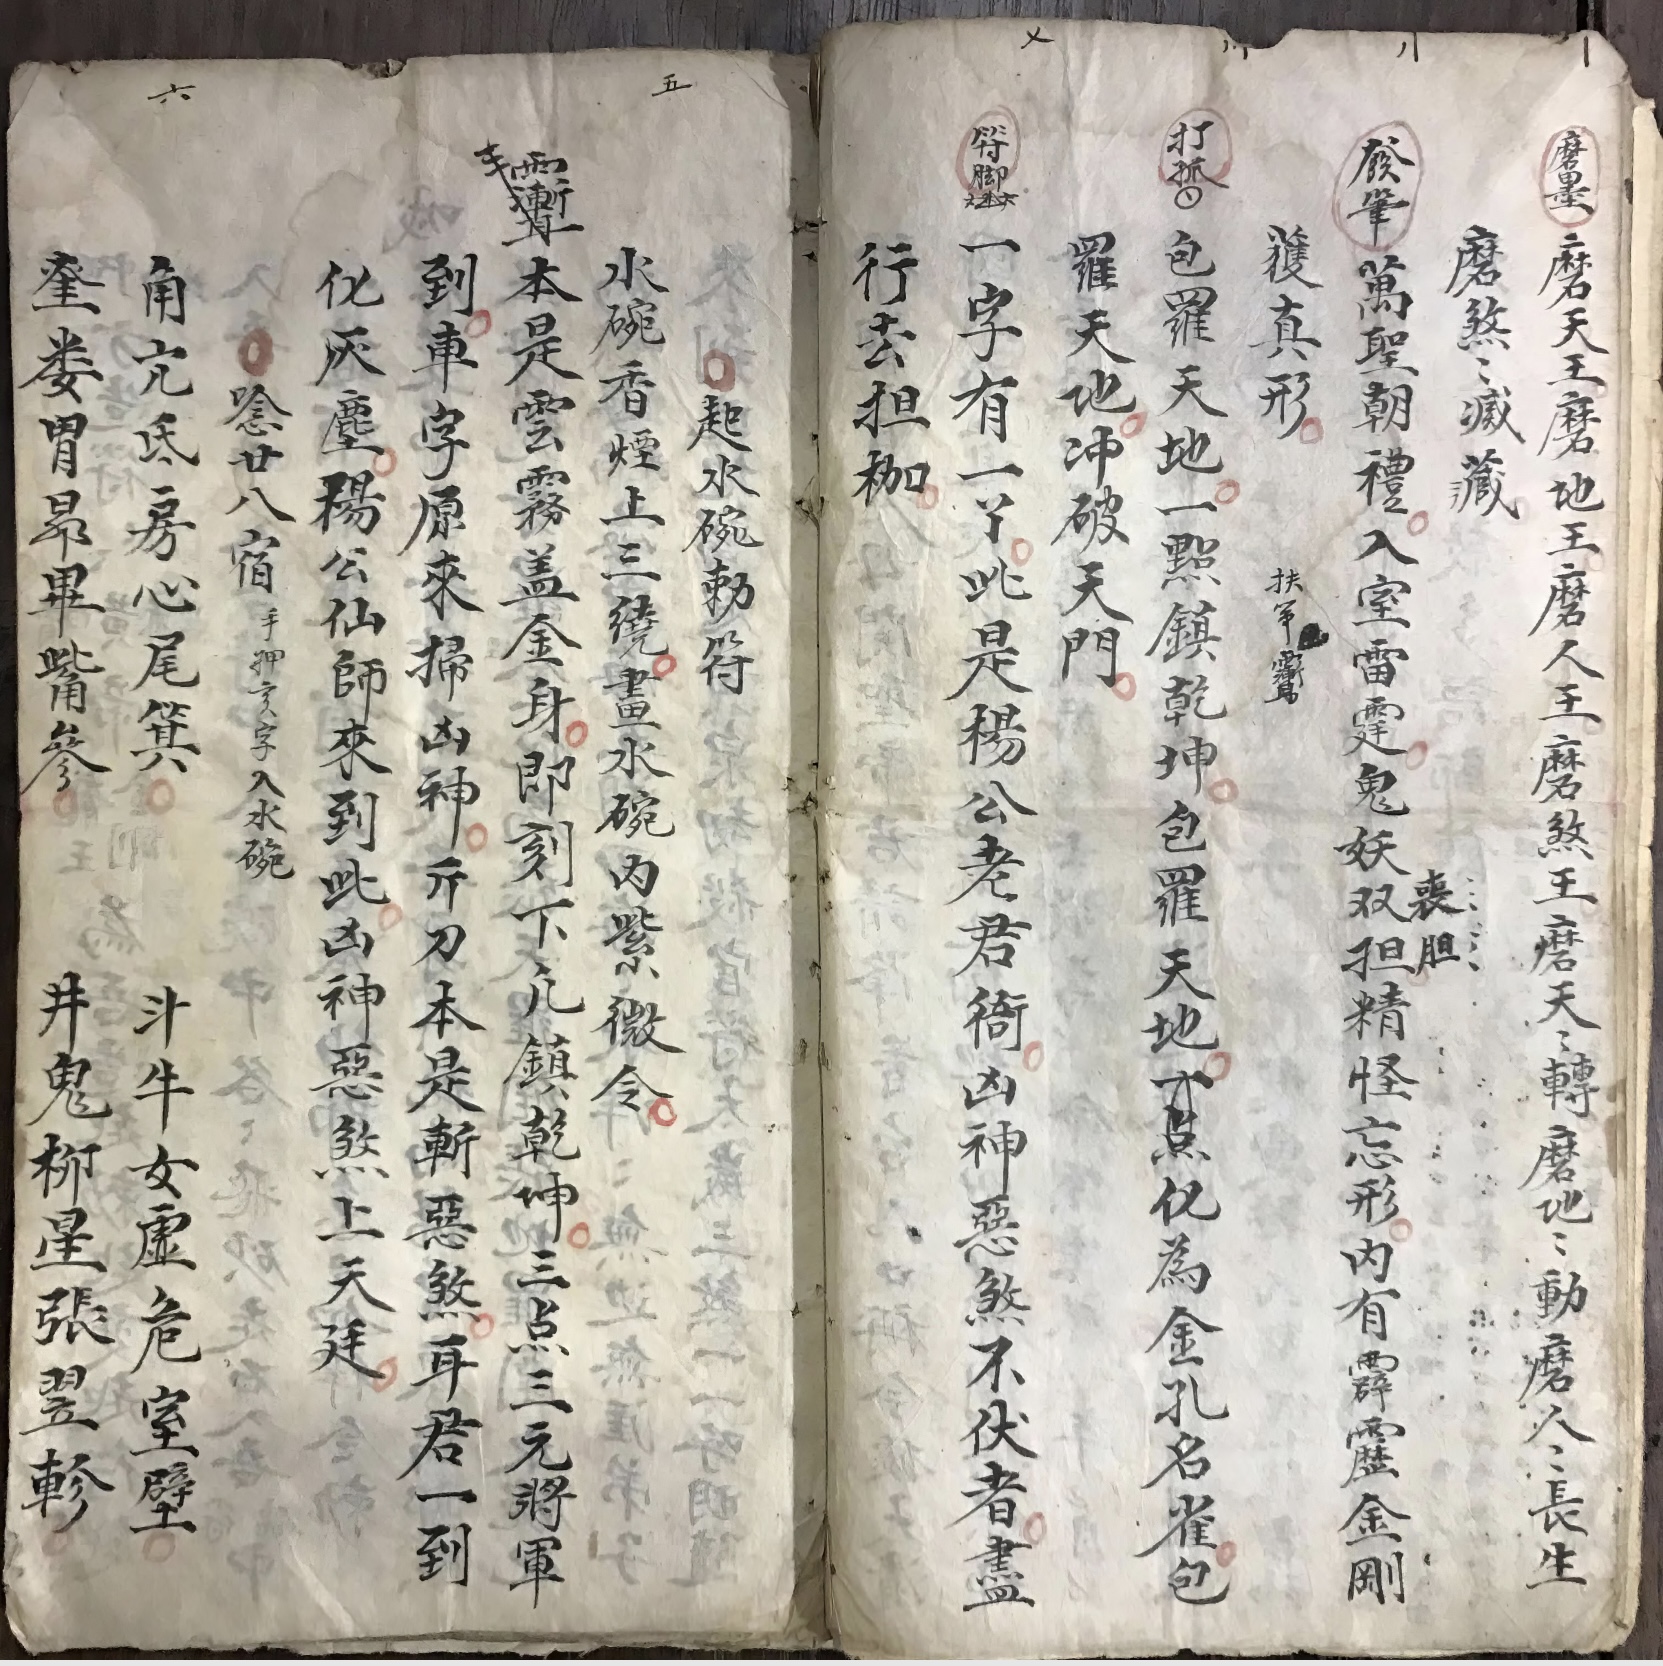 磨墨 磨天王磨地王磨人王磨煞王磨天〻轉磨地〻動磨人〻長生
磨煞〻滅藏
發筆 萬聖朝禮入室雷霆鬼妖双担精怪忘形内有霹靂金剛
喪胆
獲真形
扶
打 包羅天地一點鎮乾坤包羅天地 点化為金孔名雀包
羅天地冲破天門
符脚 一字有一丫此是楊公老君衙凶神惡煞不伏者盡
行去担枷
五
起水碗勅符
水碗香煙上三繞畫水碗内紫微令
本是雲霧盖金身即刻下凡鎮乾坤三点三元將軍
到車字原來掃凶神斤刀本是斬惡煞耳君一到
化灰塵楊公仙師來到此凶神惡煞上天廷
唸廿八宿 手押亥字入水碗
六
角亢氐房心尾箕 斗牛女虛危室壁
奎娄胃昴畢觜參 井鬼柳星張翌軫